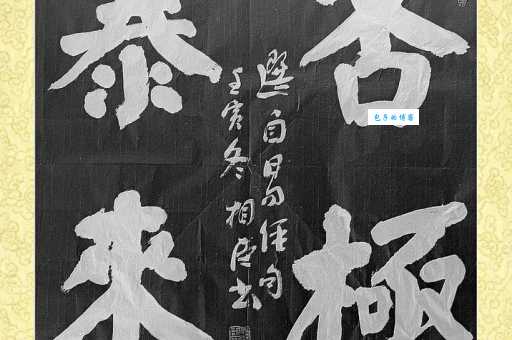 否極
選自易經句
壬寅冬 相臣书
泰來
包子的博客